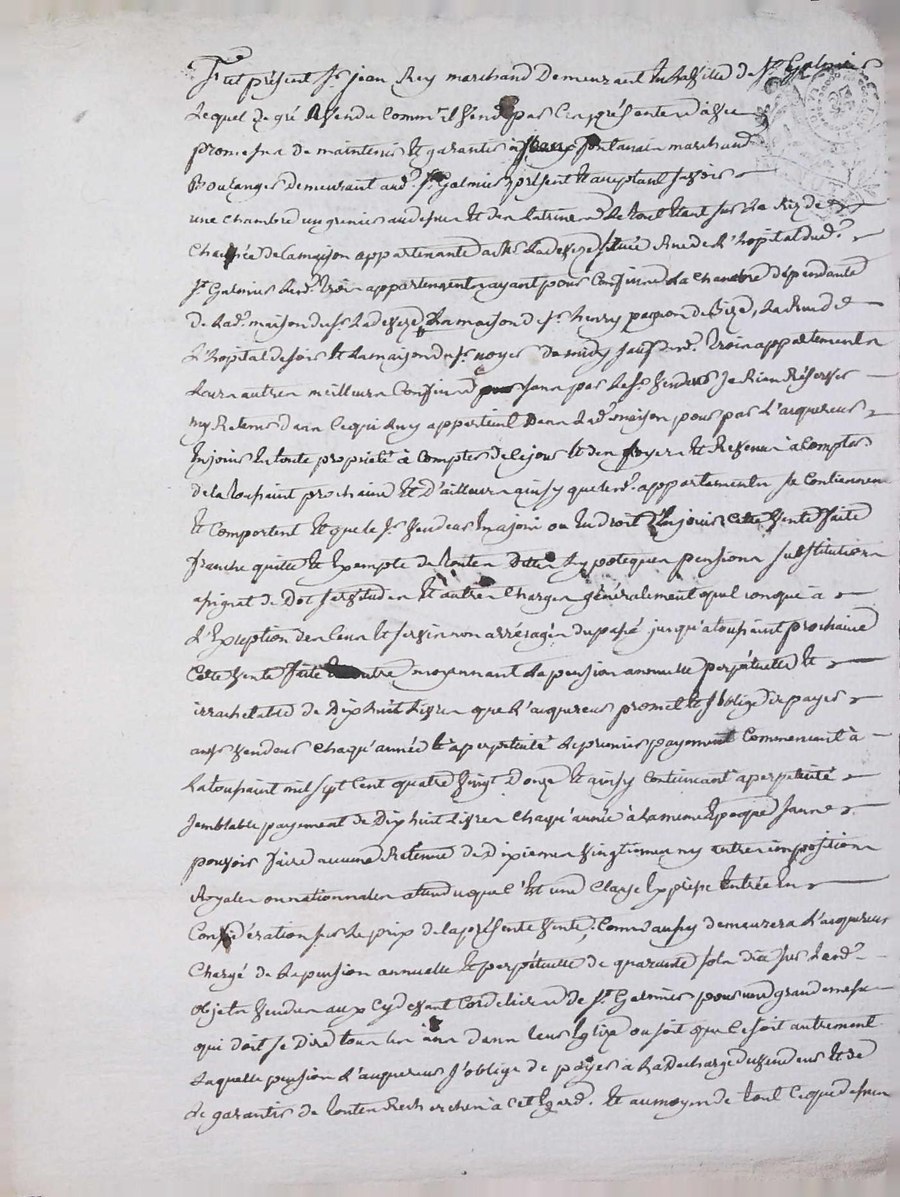 Fut présent Sr. jean Rey marchand Demeurant En la ville de St. Galmier
Lequel de gré A vendu comm'il vend par Ces présentes avec
promesse de maintenir Et garantir à fontanain marchand
Boulanger demeurant aud. St. Galmier présent Et acceptant Sçavoir
une chambre un grenier au dessus Et des latrines Le tout Etant sur La Rez de
Chaussée de la maison appartenante à Sr. Ladeveze située Rue de L'hopital dud.
St. Galmier Lesd. trois appartements ayant pour Confins La chambre dépendante
de Lad. maison du Sr. Ladeveze, La maison de Sr. henry pagnon de Bize, La rue de
L'hopital de soir Et La maison du Sr. noyer de midy sauf desd. trois appartements
Leurs autres meilleurs Confins sans par Led. Sr. vendeur Se Rien Réserver
ny Retenir dans Ce qui Luy appartient Dans Lad. maison pour par L'acquereur
En jouir En toute propriété à Compter de Ce jour Et des Loyers Et Revenus à Compter
de la toussaint prochaine Et d'ailleurs ainsy que Lesd. appartements se Contiennent
Et Comportent Et que le Sr. vendeur En a joui ou Eu droit d'En jouir, Cette vente faite
franche quitte Et Exempte de toutes Dettes hypoteques pensions substitutions
assignat de Dot servitudes Et autres Charges généralement quelconque à
L'Exception des Cens Et servis non arréragés du passé jusqu'à toussaint prochaine
Cette vente faite En outre moyennant La pension annuelle perpétuelle Et
irrachetable de Dix huit Livres que L'acquereur promet Et s'oblige de payer
aud. vendeur chaqu'année Et à perpétuité Le premier payement Commencant à
La toussaint mil sept Cent quatre vingt Douze Et ainsy Continuant à perpétuité
semblable payement de Dix huit Livres Chaqu'année à La meme Epoque sans
pouvoir faire aucune Retenue de dixiemes vingtiemes ny autres impositions
Royales ou nationnales attendu que C'Est une Clause Expresse Entrée En
Considération sur Le prix de la présente vente, Comm'aussy demeurera L'acquereur
Chargé de La pension annuelle Et perpétuelle de quarante sols due sur Lesd.
objets vendus aux Cy devant Cordeliers de St. Galmier pour une grande messe
qui doit se Dire tous les ans dans leur Eglise ou soit que Ce soit autrement
Laquelle pension L'acquereur s'oblige de payer à La Decharge du vendeur Et de
Le garantir de toutes Recherches à Cet Egard. Et au moyen de tout Ce que dessus